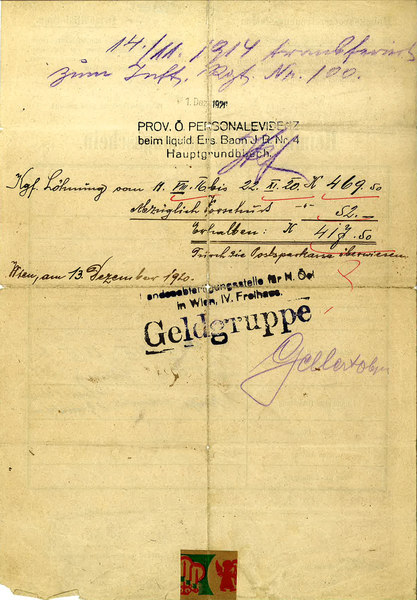 14./11. 1914 transferiert
zum Inft. Rgt. No. 100.
1. Dez. 1920
PROV. Ö. PERSONALEVIDENZ
beim liquid. Ers. Baon J. R. Nr. 4
Hauptgrundbuch.
Kgf. Löhnung vom 11. VII. 16 bis 22. XI. 20. K 469.50
Abzüglich Vorschuss -"- 52.–
Erhalten: K 417.50
Durch die Postsparkasse überwiesen
Wien, am 13. Dezember 1920.
Landesabfertigungsstelle für N. Öst
in Wien, IV. Freihaus.
Geldgruppe